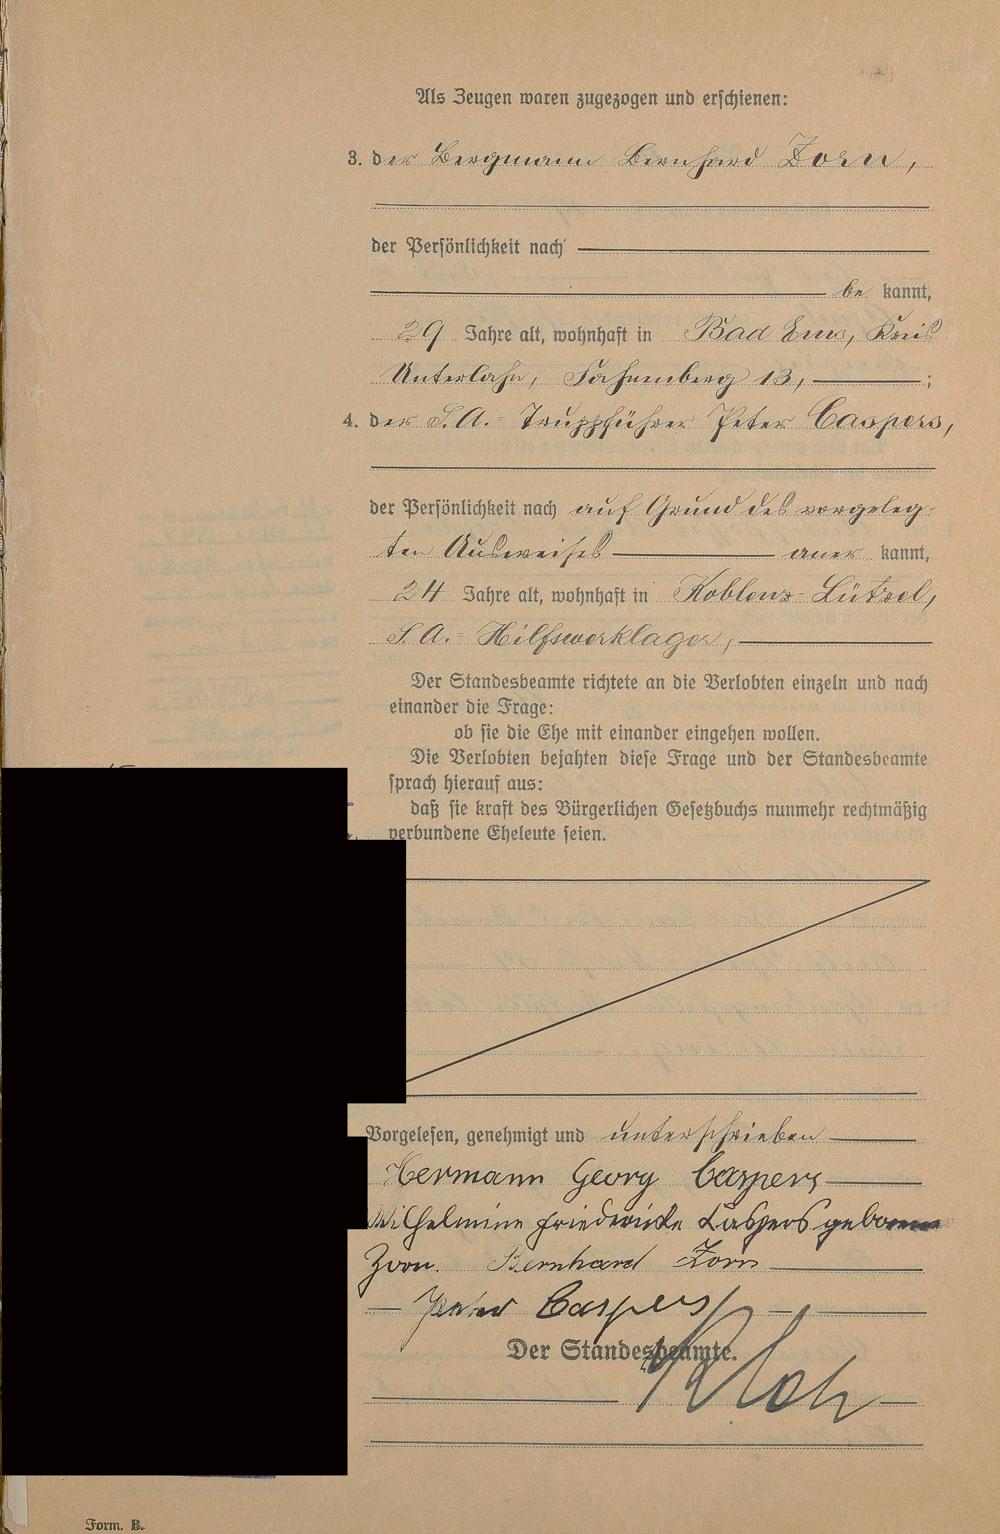 Als Zeugen waren zugezogen und erschienen:
3. der Bergmann Bernhard Zorn,
der Persönlichkeit nach
be kannt,
29 Jahre alt, wohnhaft in Bad Ems, Kreis
Unterlahn, Fahnenberg 13, ;
4. der S.A.-Truppführer Peter Caspers,
der Persönlichkeit nach auf Grund des vorgeleg-
ten Ausweises aner kannt,
24 Jahre alt, wohnhaft in Koblenz-Lützel,
S.A.-Hilfswerklager,
Der Standesbeamte richtete an die Verlobten einzeln und nach
einander die Frage:
ob sie die Ehe mit einander eingehen wollen.
Die Verlobten bejahten diese Frage und der Standesbeamte
sprach hierauf aus:
daß sie kraft des Bürgerlichen Gesetzbuchs nunmehr rechtmäßig
verbundene Eheleute seien.
Vorgelesen, genehmigt und unterschrieben
Hermann Georg Caspers
Wilhelmine Friedericke Caspers geborene
Zorn. Bernhard Zorn
Peter Caspers
Der Standesbeamte.
Form. B.